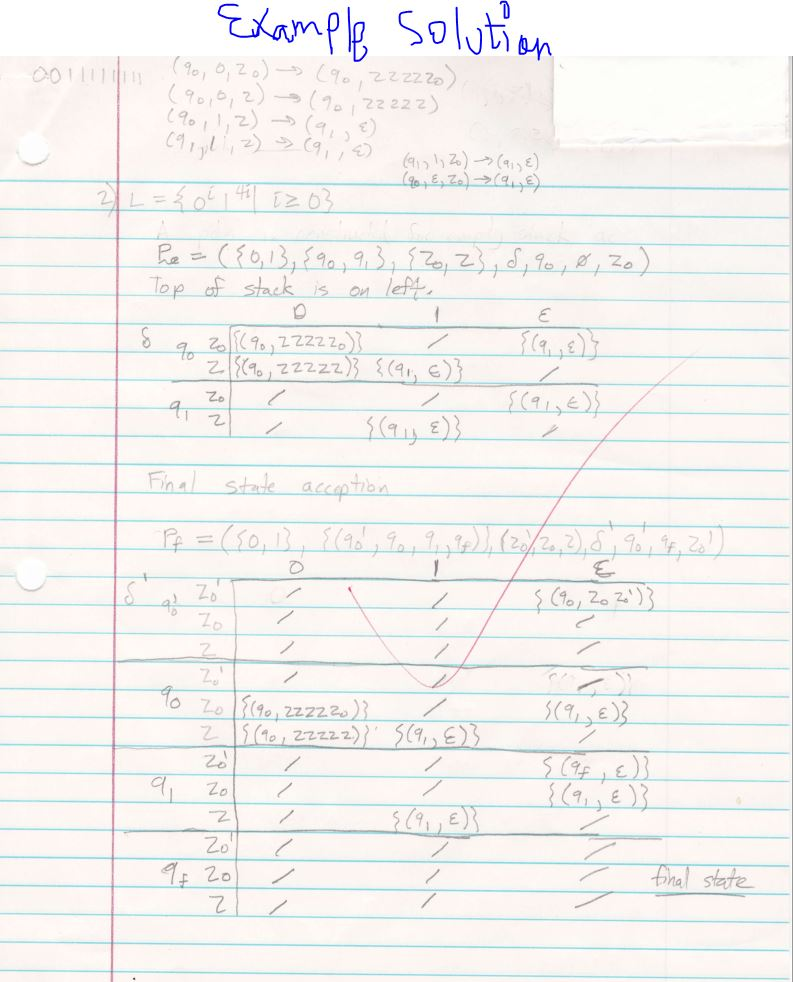 Example Solution
0011111111 (q0, 0, z0) → (q0, zzzzz0)
(q0, 0, z) → (q0, zzzzz)
(q0, 1, z) → (q1, ε)
(q1, 1, z) → (q1, ε)
(q1, 1, z0) → (q1, ε)
(q0, ε, z0) → (q1, ε)
2) L = {0^i 1^4i | i ≥ 0}
Pe = ({0,1}, {q0, q1}, {z0, z}, δ, q0, ∅, z0)
Top of stack is on left.
0 1 ε
δ q0 z0 {(q0, zzzzz0)} / {(q1, ε)}
z {(q0, zzzzz)} {(q1, ε)} /
q1 z0 / / {(q1, ε)}
z / {(q1, ε)} /
Final state acception
Pf = ({0,1}, {(q0', q0, q1, qf)}, (z0', z0, z), δ', q0', qf, z0')
0 1 ε
δ' q0' z0' / / {(q0, z0 z0')}
z0 / / /
z / / /
z0' / / /
q0 z0 {(q0, zzzzz0)} / {(q1, ε)}
z {(q0, zzzzz)} {(q1, ε)} /
z0' / / {(qf, ε)}
q1 z0 / / {(q1, ε)}
z / {(q1, ε)} /
z0' / / /
qf z0 / / / final state
z / / /